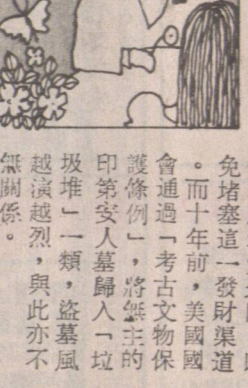 免堵塞這一發財渠道
。而十年前，美國國
會通過「考古文物保
護條例」，將無主的
印第安人墓歸入「垃
圾堆」一類，盜墓風
越演越烈，與此亦不
無關係。